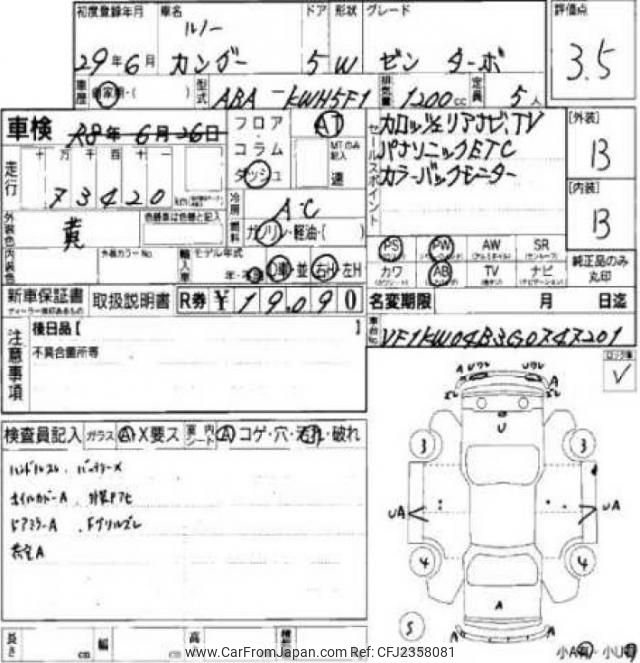 初度登録年月 車名 ドア 形状 グレード 評価点
ルノー
29年6月 カングー 5 W ゼン ターボ 3.5
車歴 自家用・( ) 型式 ABA-KWH5F1 排気量 1200cc 定員 5人
車検 R8年6月26日
フロア・コラム ダッシュ AT MTのみ記入 速
セールスポイント カロッツェリアナビ、TV
パナソニックETC
カラーバックモニター
[外装] B
[内装] B
走行 十万千百十一
73420 km
冷房 A・C
燃料 ガソリン・軽油・( )
外装色 黄 色替車は色替と記入
内装色 外装カラーNo. 輸入車 モデル年式 年・ D車・並 右H・左H
PS PW AW SR
カワ AB TV ナビ
純正品のみ丸印
新車保証書 取扱説明書 R券 ¥19,090
ディーラー捺印あるもの
名変期限 月 日迄
車台No. VF1KW04B3G0747201
注意事項 後日品【 】
不具合箇所等
検査員記入 ガラス A・X要ス 室内シート A・コゲ・穴・汚れ・破れ
ハンドルスレ、バッテリーX
ホイルカバーA、外装Pアセ
ドアミラーA、Fグリルズレ
荷室A
A Uワレ Uワレ A
U
3 3
UA UA
4 4
A
S
A
長さ cm 幅 cm 高
小A有・小U有
www.CarFromJapan.com Car Ref: CFJ2358081